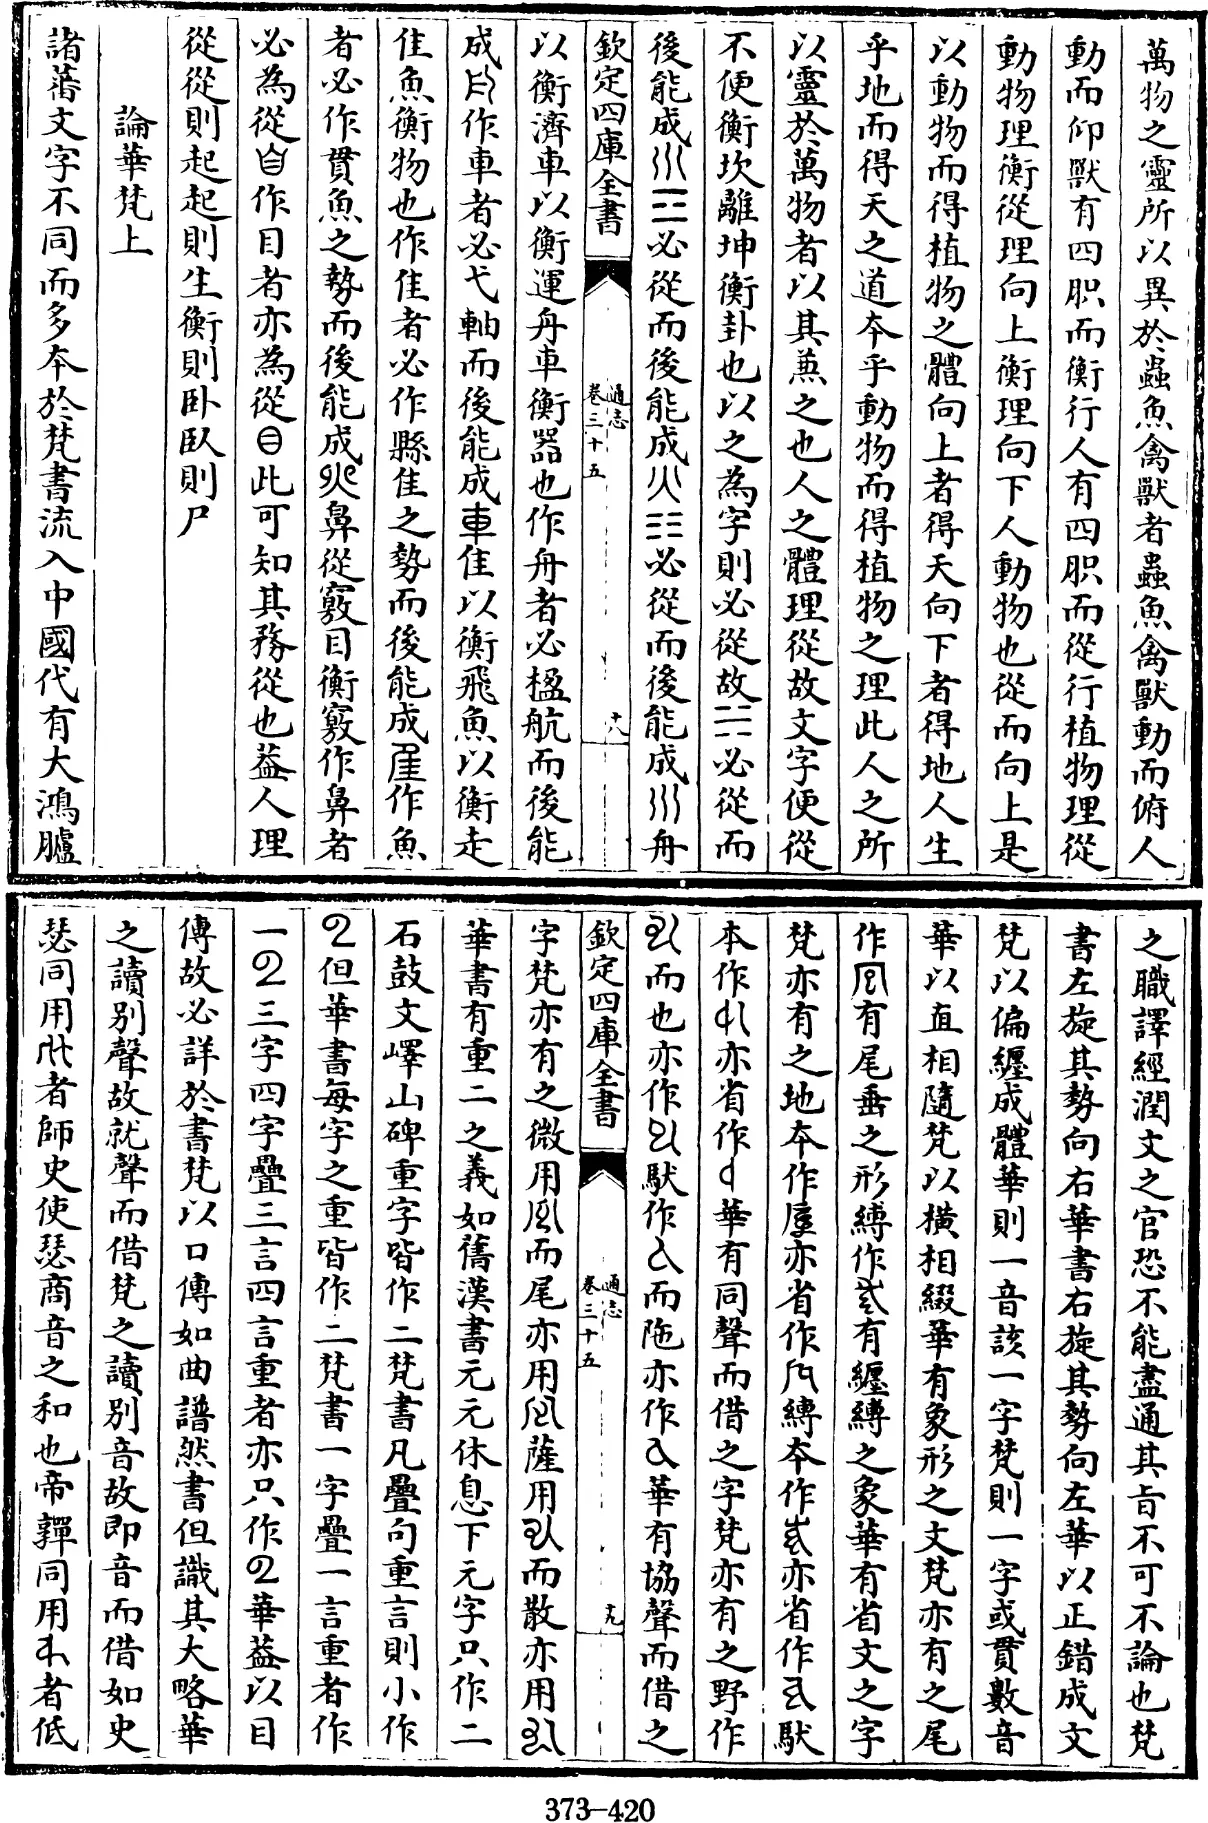 萬物之靈所以異於蟲魚禽獸者蟲魚禽獸動而俯人
動而仰獸有四肢而衡行人有四肢而從行植物理從
動物理衡從理向上衡理向下人動物也從而向上是
以動物而得植物之體向上者得天向下者得地人生
乎地而得天之道本乎動物而得植物之理此人之所
以靈於萬物者以其兼之也人之體理從故文字便從
不便衡坎離坤衡卦也以之為字則必從故☵必從而
後能成巛☲必從而後能成火☷必從而後能成巛舟
欽定四庫全書
通志
卷三十五
十八
以衡濟車以衡運舟車衡器也作舟者必楹航而後能
成作車者必弋軸而後能成車隹以衡飛魚以衡走
隹魚衡物也作隹者必作縣隹之勢而後能成隹作魚
者必作貫魚之勢而後能成鼻從竅目衡竅作鼻者
必為從自作目者亦為從目此可知其務從也葢人理
從從則起起則生衡則卧臥則尸
論華梵上
諸蕃文字不同而多本於梵書流入中國代有大鴻臚
之職譯經潤文之官恐不能盡通其旨不可不論也梵
書左旋其勢向右華書右旋其勢向左華以正錯成文
梵以偏纒成體華則一音該一字梵則一字或貫數音
華以直相隨梵以橫相綴華有象形之文梵亦有之尾
作有尾垂之形縛作有纒縛之象華有省文之字
梵亦有之地本作亦省作縛本作亦省作馱
本作亦省作華有同聲而借之字梵亦有之野作
而也亦作馱作而陁亦作華有協聲而借之
欽定四庫全書
通志
卷三十五
十九
字梵亦有之微用而尾亦用薩用而散亦用
華書有重二之義如舊漢書元元休息下元字只作二
石鼓文嶧山碑重字皆作二梵書凡疊句重言則小作
但華書每字之重皆作二梵書一字疊一言重者作
一三字四字疊三言四言重者亦只作華葢以目
傳故必詳於書梵以口傳如曲譜然書但識其大略華
之讀别聲故就聲而借梵之讀别音故即音而借如史
瑟同用者師史使瑟商音之和也帝驒同用者低
373-420